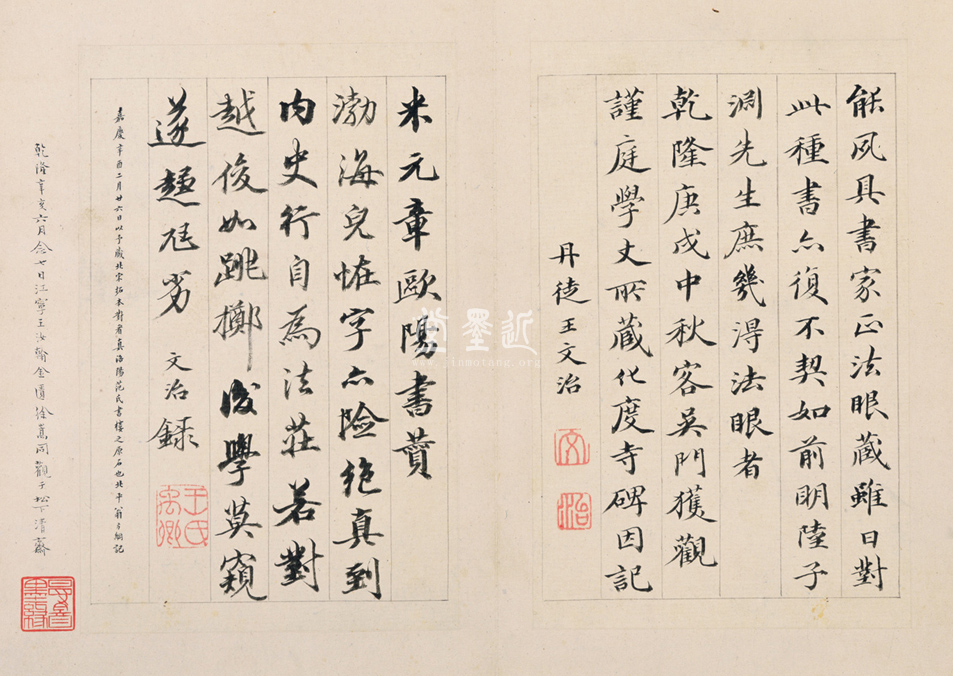 能夙具書家正法眼藏雖日對
此種書亦復不契如前明陸子
淵先生庶幾得法眼者
乾隆庚戌中秋客吳門獲觀
謹庭學丈所藏化度寺碑因記
丹徒王文治
文治
米元章歐陽書贊
渤海兒恠字亦險絕真到
內史行自為法莊若對
越俊如跳擲後學莫窺
遂趨尫劣
文治錄
王氏禹卿
嘉慶辛酉二月廿六日以予藏北宋拓本對看真洛陽范氏書樓之原石也北平翁方綱記
乾隆辛亥六月念七日江寧王汝翰金匱徐嵩同觀于松下清齋
近墨堂
www.jinmotang.org